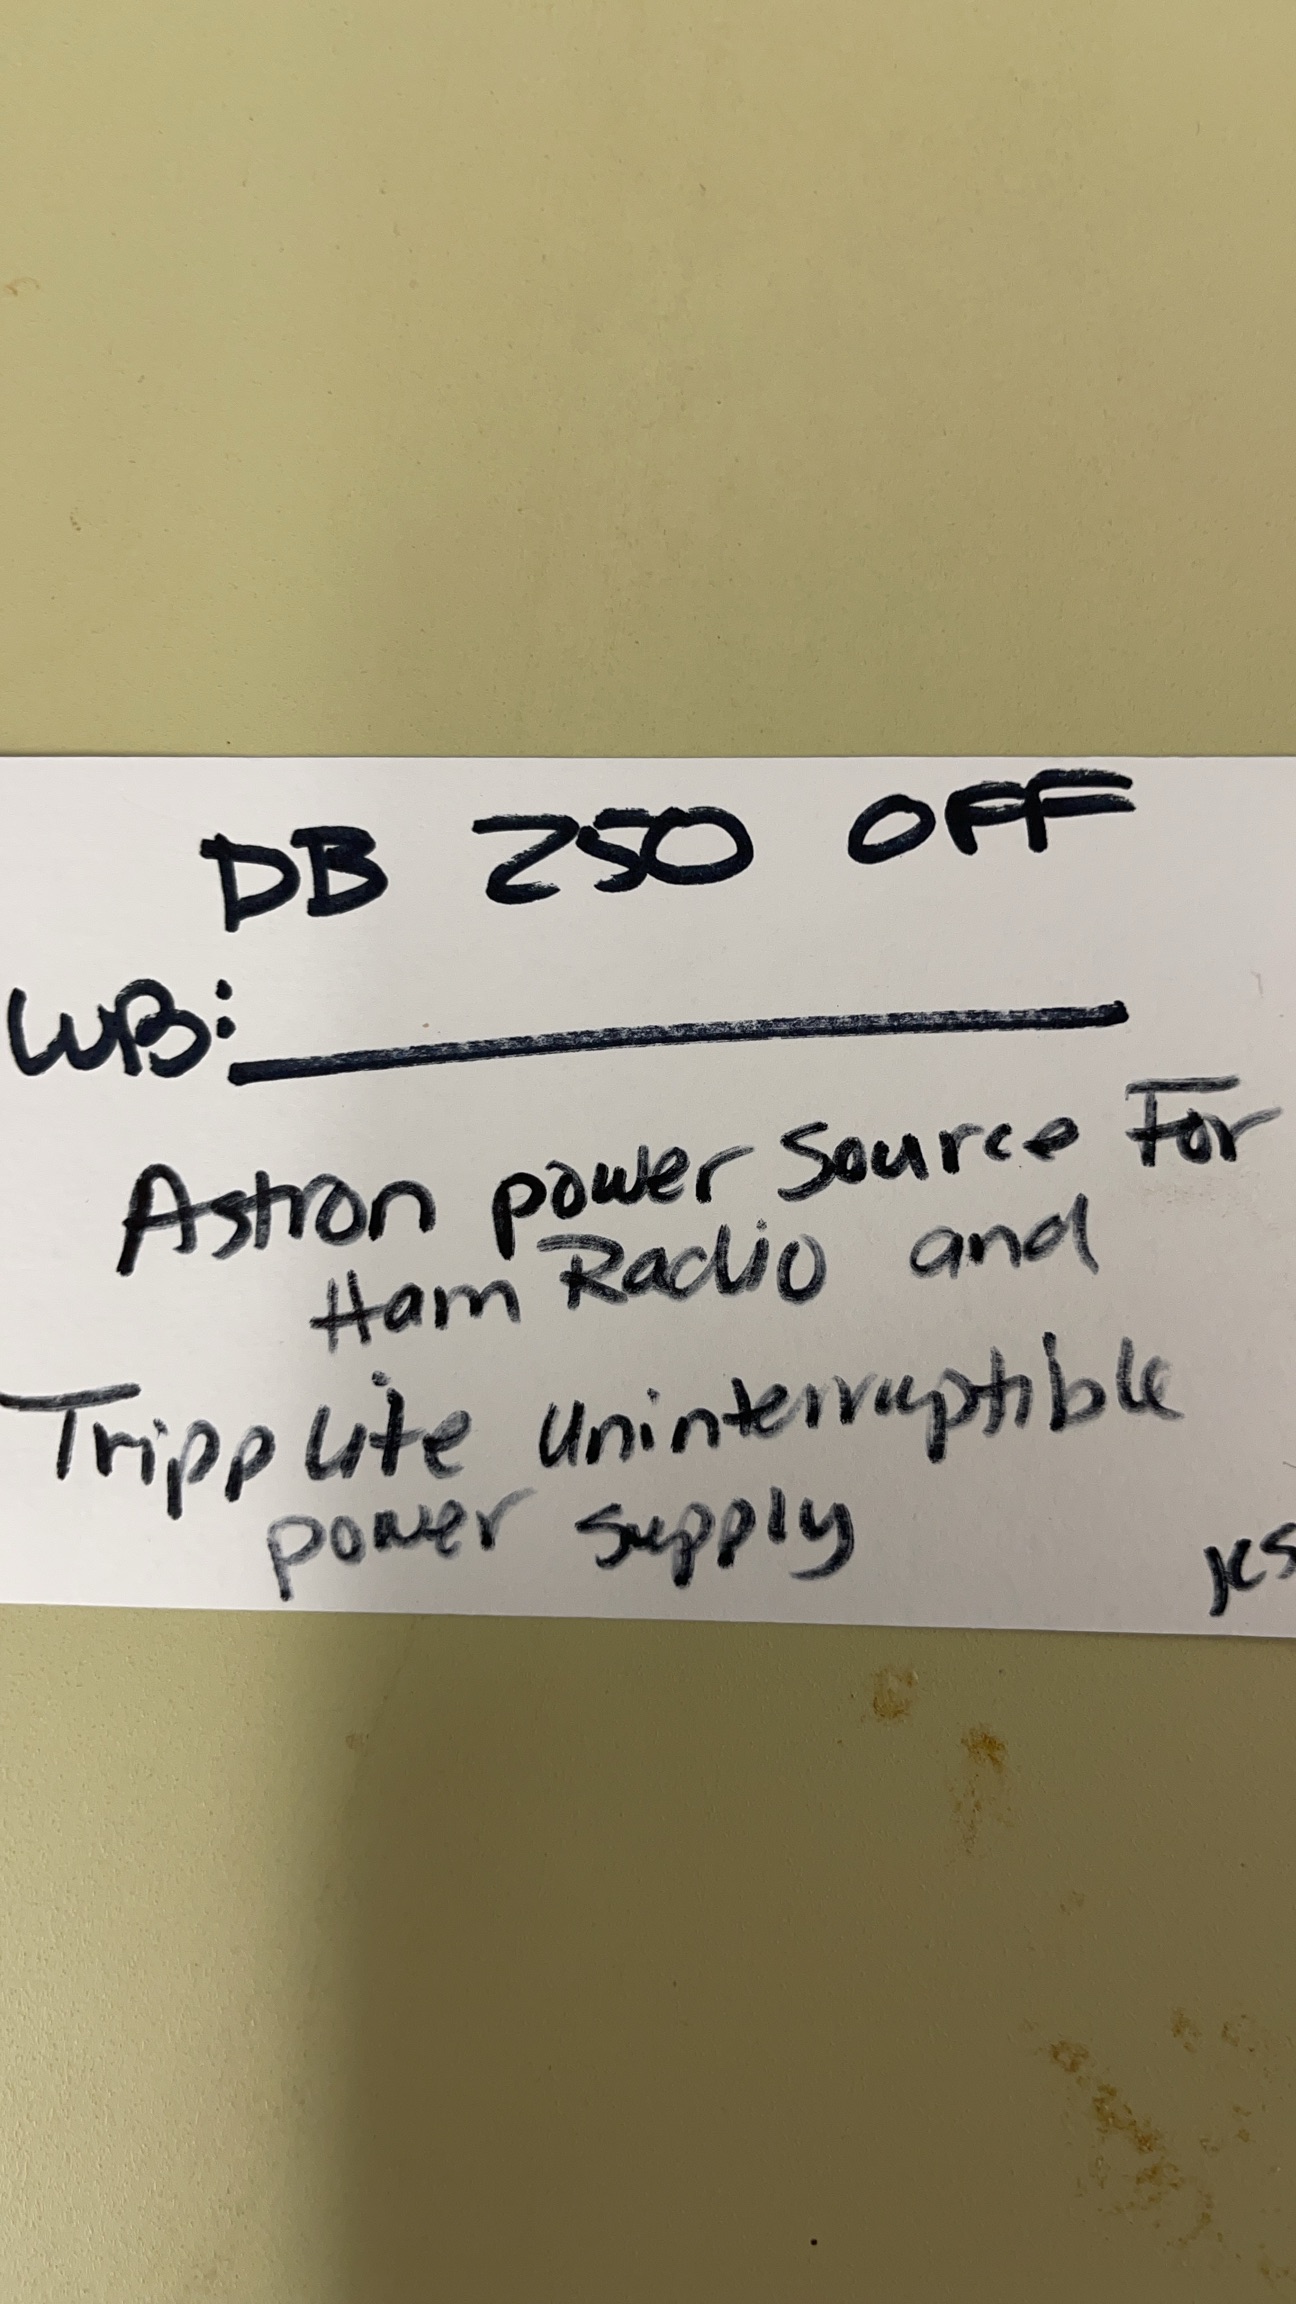 DB 250 OFF
WB:
Astron power source For
Ham Radio and
Tripp Lite Uninterruptible
power supply
KS